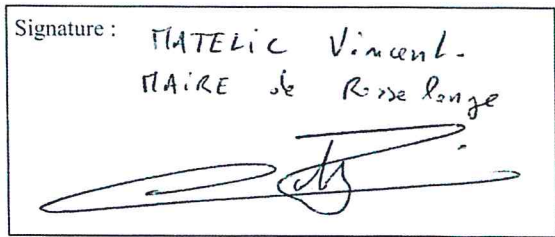 Signature : MATELIC Vincent.
MAIRE de Rosselange